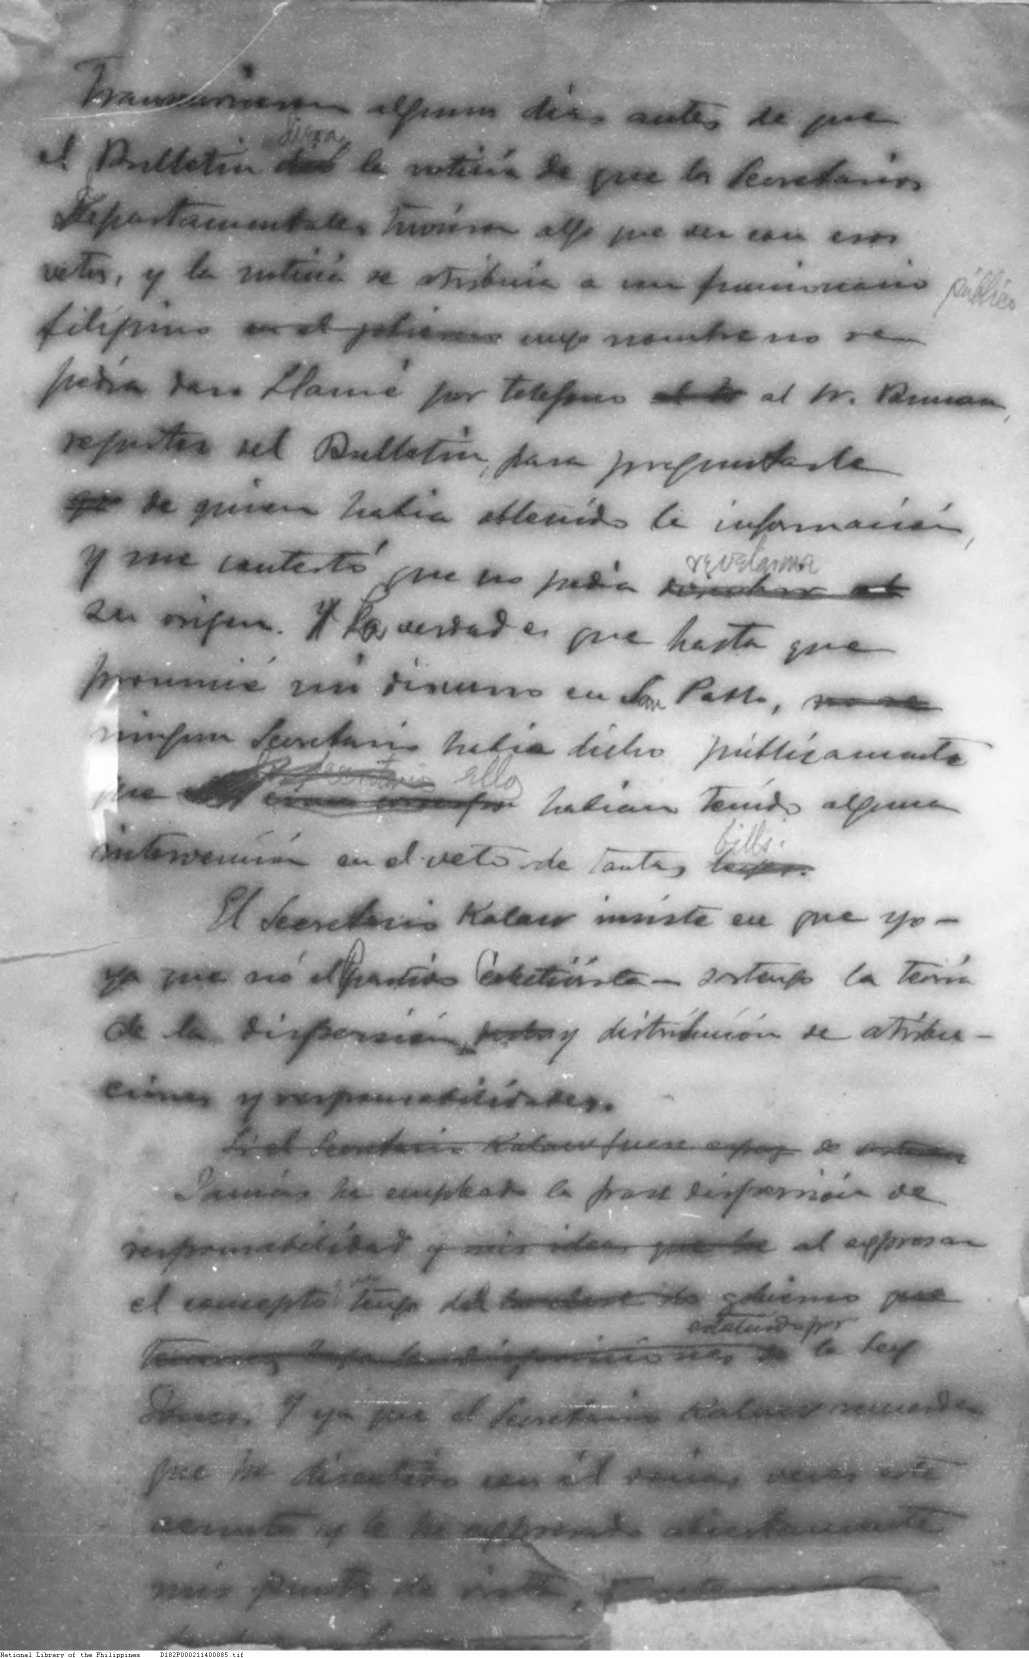 Transcurrieron algunos dias antes de que
diera
el Bulletin la noticia de que los Secretarios
Departamentales tuvieron algo que ver con esos
vetos, y la noticia se atribuia a un funcionario público
filipino en el gobierno cuyo nombre no se
podia dar. Llamé por telefono al Sr. 
reporter del Bulletin, para preguntarle
de quien habia obtenido la información,
y me contestó que no podia revelarme
su origen. Y La verdad es que hasta que
pronuncié mi discurso en San Pablo, no se
ningun Secretario habia dicho públicamente
que ellos habian tenido alguna
intervención en el veto de tantos bills.
El Secretario Kalaw insiste en que yo—
ya que nó el partido Colectivista— sostengo la teoría
de la dispersión y distribución de atribu-
ciones y responsabilidades.
Si el Secretario Kalaw fuese capaz de
Jamás he empleado la frase dispersión de
responsabilidad y mis ideas que he al expresar
el concepto que tengo del gobierno que
estatuido por
la Ley
Jones. Y ya que el Secretario Kalaw recuerda
que he discutido con él varias veces este
asunto y le he expresado abiertamente
mis puntos de vista,
National Library of the Philippines D182P000211400085.tif